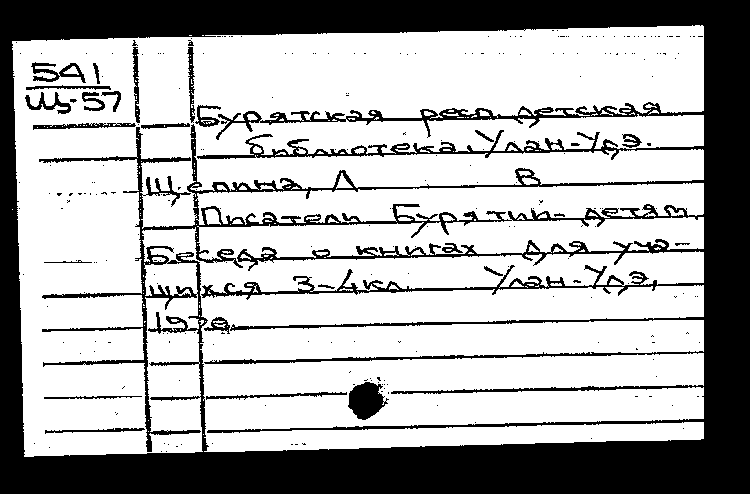 541
Щ-57
Бурятская респ. детская
библиотека. Улан-Удэ.
Щепина, Л В
Писатели Бурятии - детям.
Беседа о книгах для уча-
щихся 3-4 кл. Улан-Удэ,